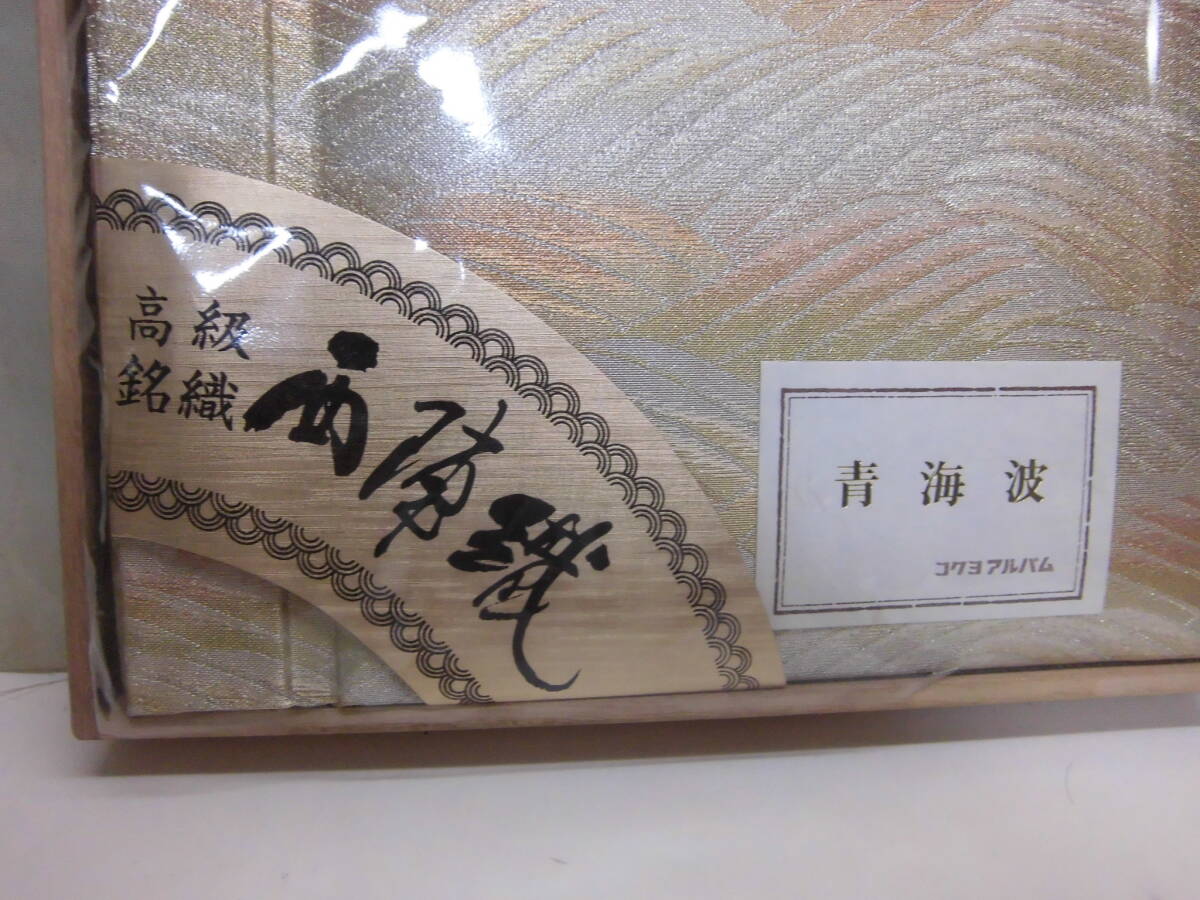 高級
銘織
西陣織
青海波
コクヨアルバム